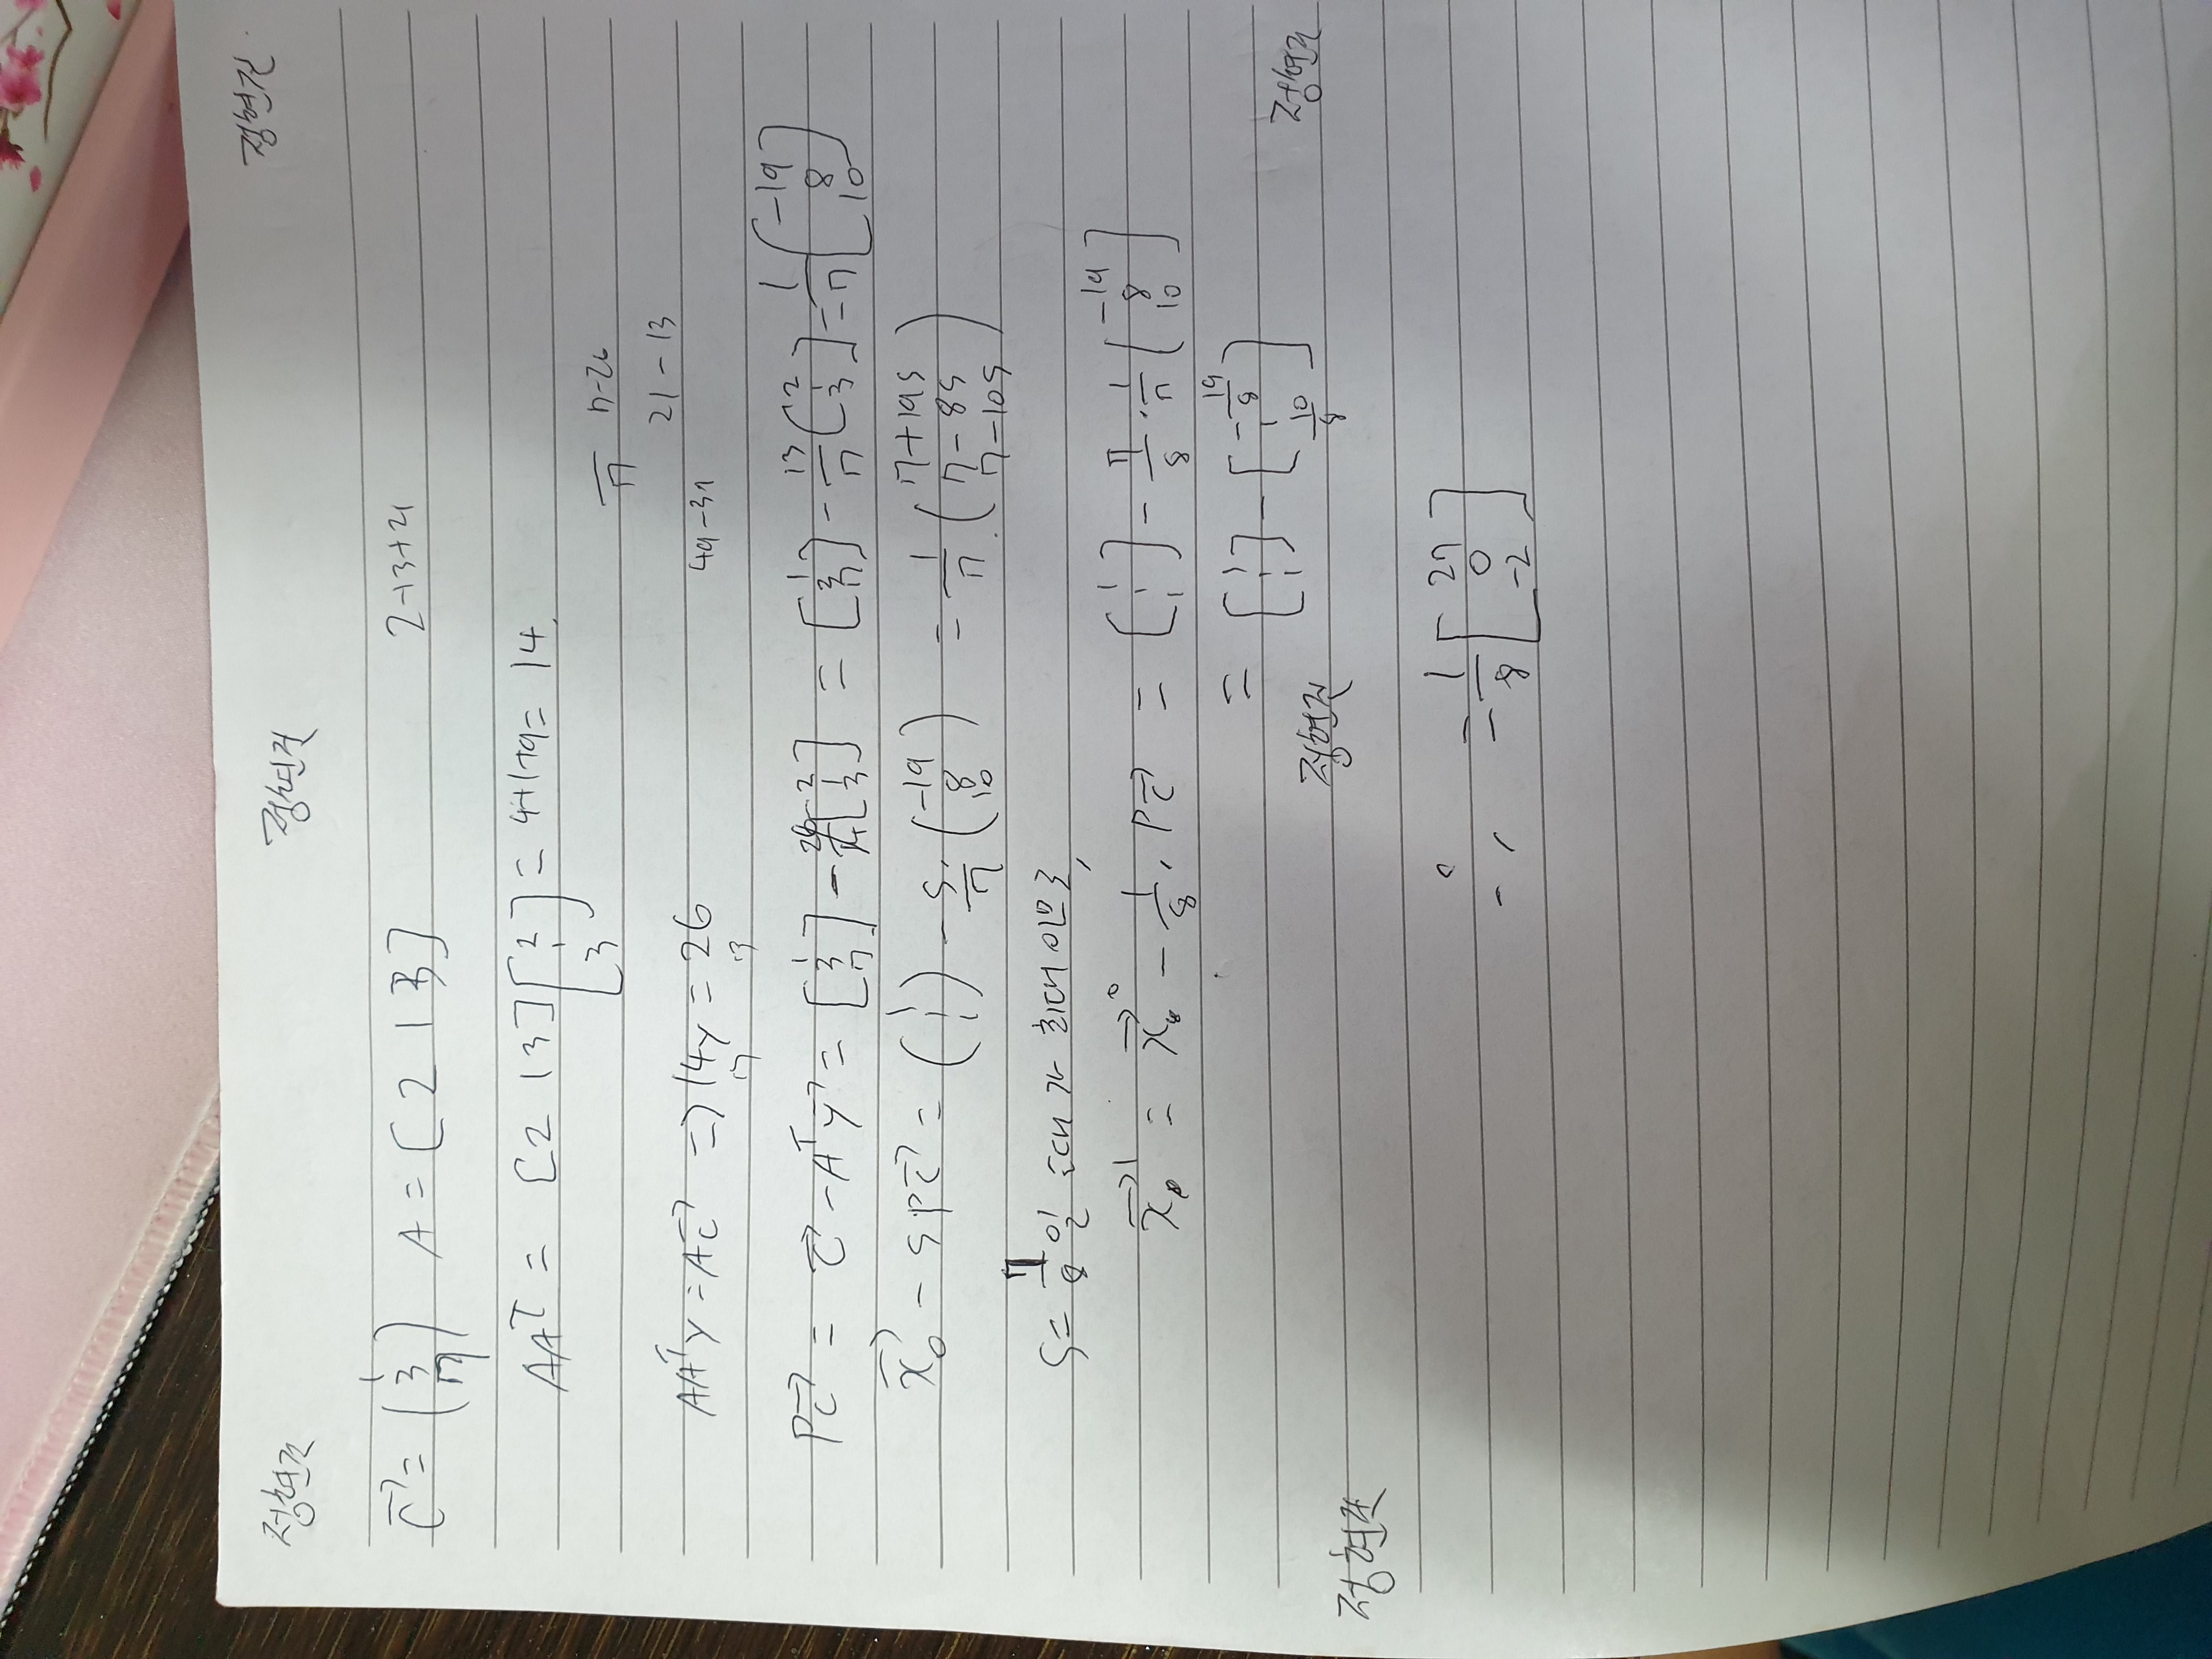 정현진 정현진 정현진
c⃗ = (1 3 7) A = [2 1 3] 2+3+21
AAᵀ = [2 1 3] [2 1 3] = 4+1+9 = 14.
7 7-26
21-13
AAᵀy = Ac⃗ => 14y = 26 49-39
7 13
Pc⃗ = c⃗ - Aᵀy⃗ = [1 3 7] - 26/14 [2 1 3] = [1 3 7] - 13/7 [2 1 3] = 1/7 [-19 8 10]
x⃗₀ - sPc⃗ = (1 1 1) - s/7 · (-19 8 10) = 1/7 (7+19s 7-8s 7-10s)
s = 7/8 일 때가 최대이므로,
x⃗¹ = x⃗⁰ - 1/8 · Pc⃗ = [1 1 1] - 7/8 · 1/7 [-19 8 10]
= [1 1 1] - [-19/8 1 10/8]
정현진 정현진 정현진
∴ = 1/8 [27 0 -2]